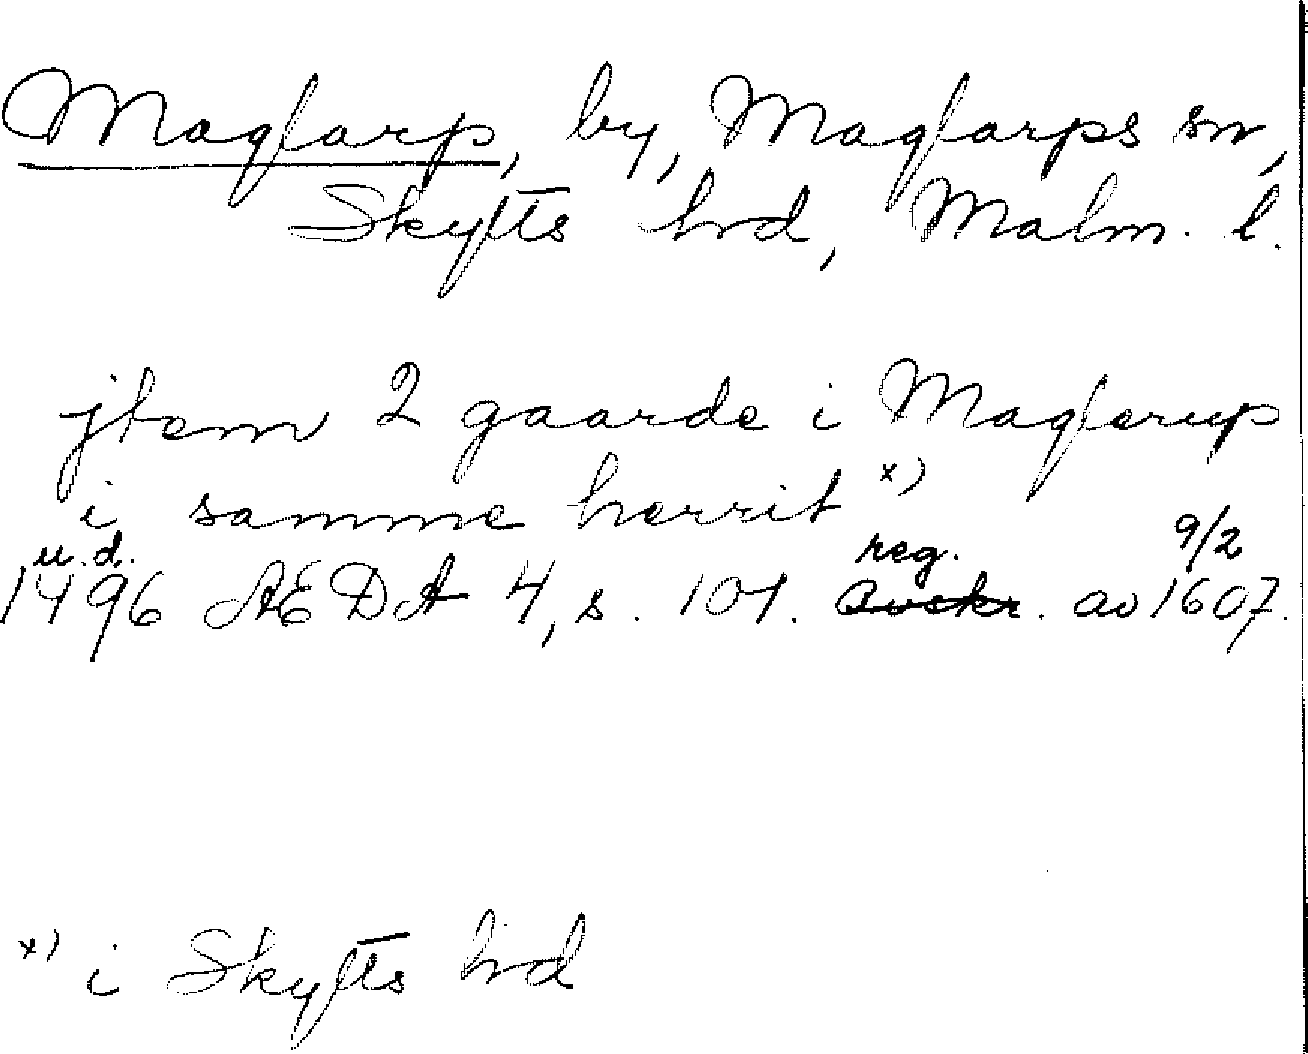 Maglarp, by, Maglarps sn,
Skytts hrd, Malm. l.
jtem 2 gaarde i Maglerup
i samme herrit x)
u. d. reg. 9/2
1496 ÆDA 4, s. 101. Avskr. av 1607.
x) i Skytts hrd